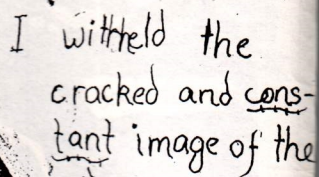 I withheld the
cracked and cons-
tant image of the